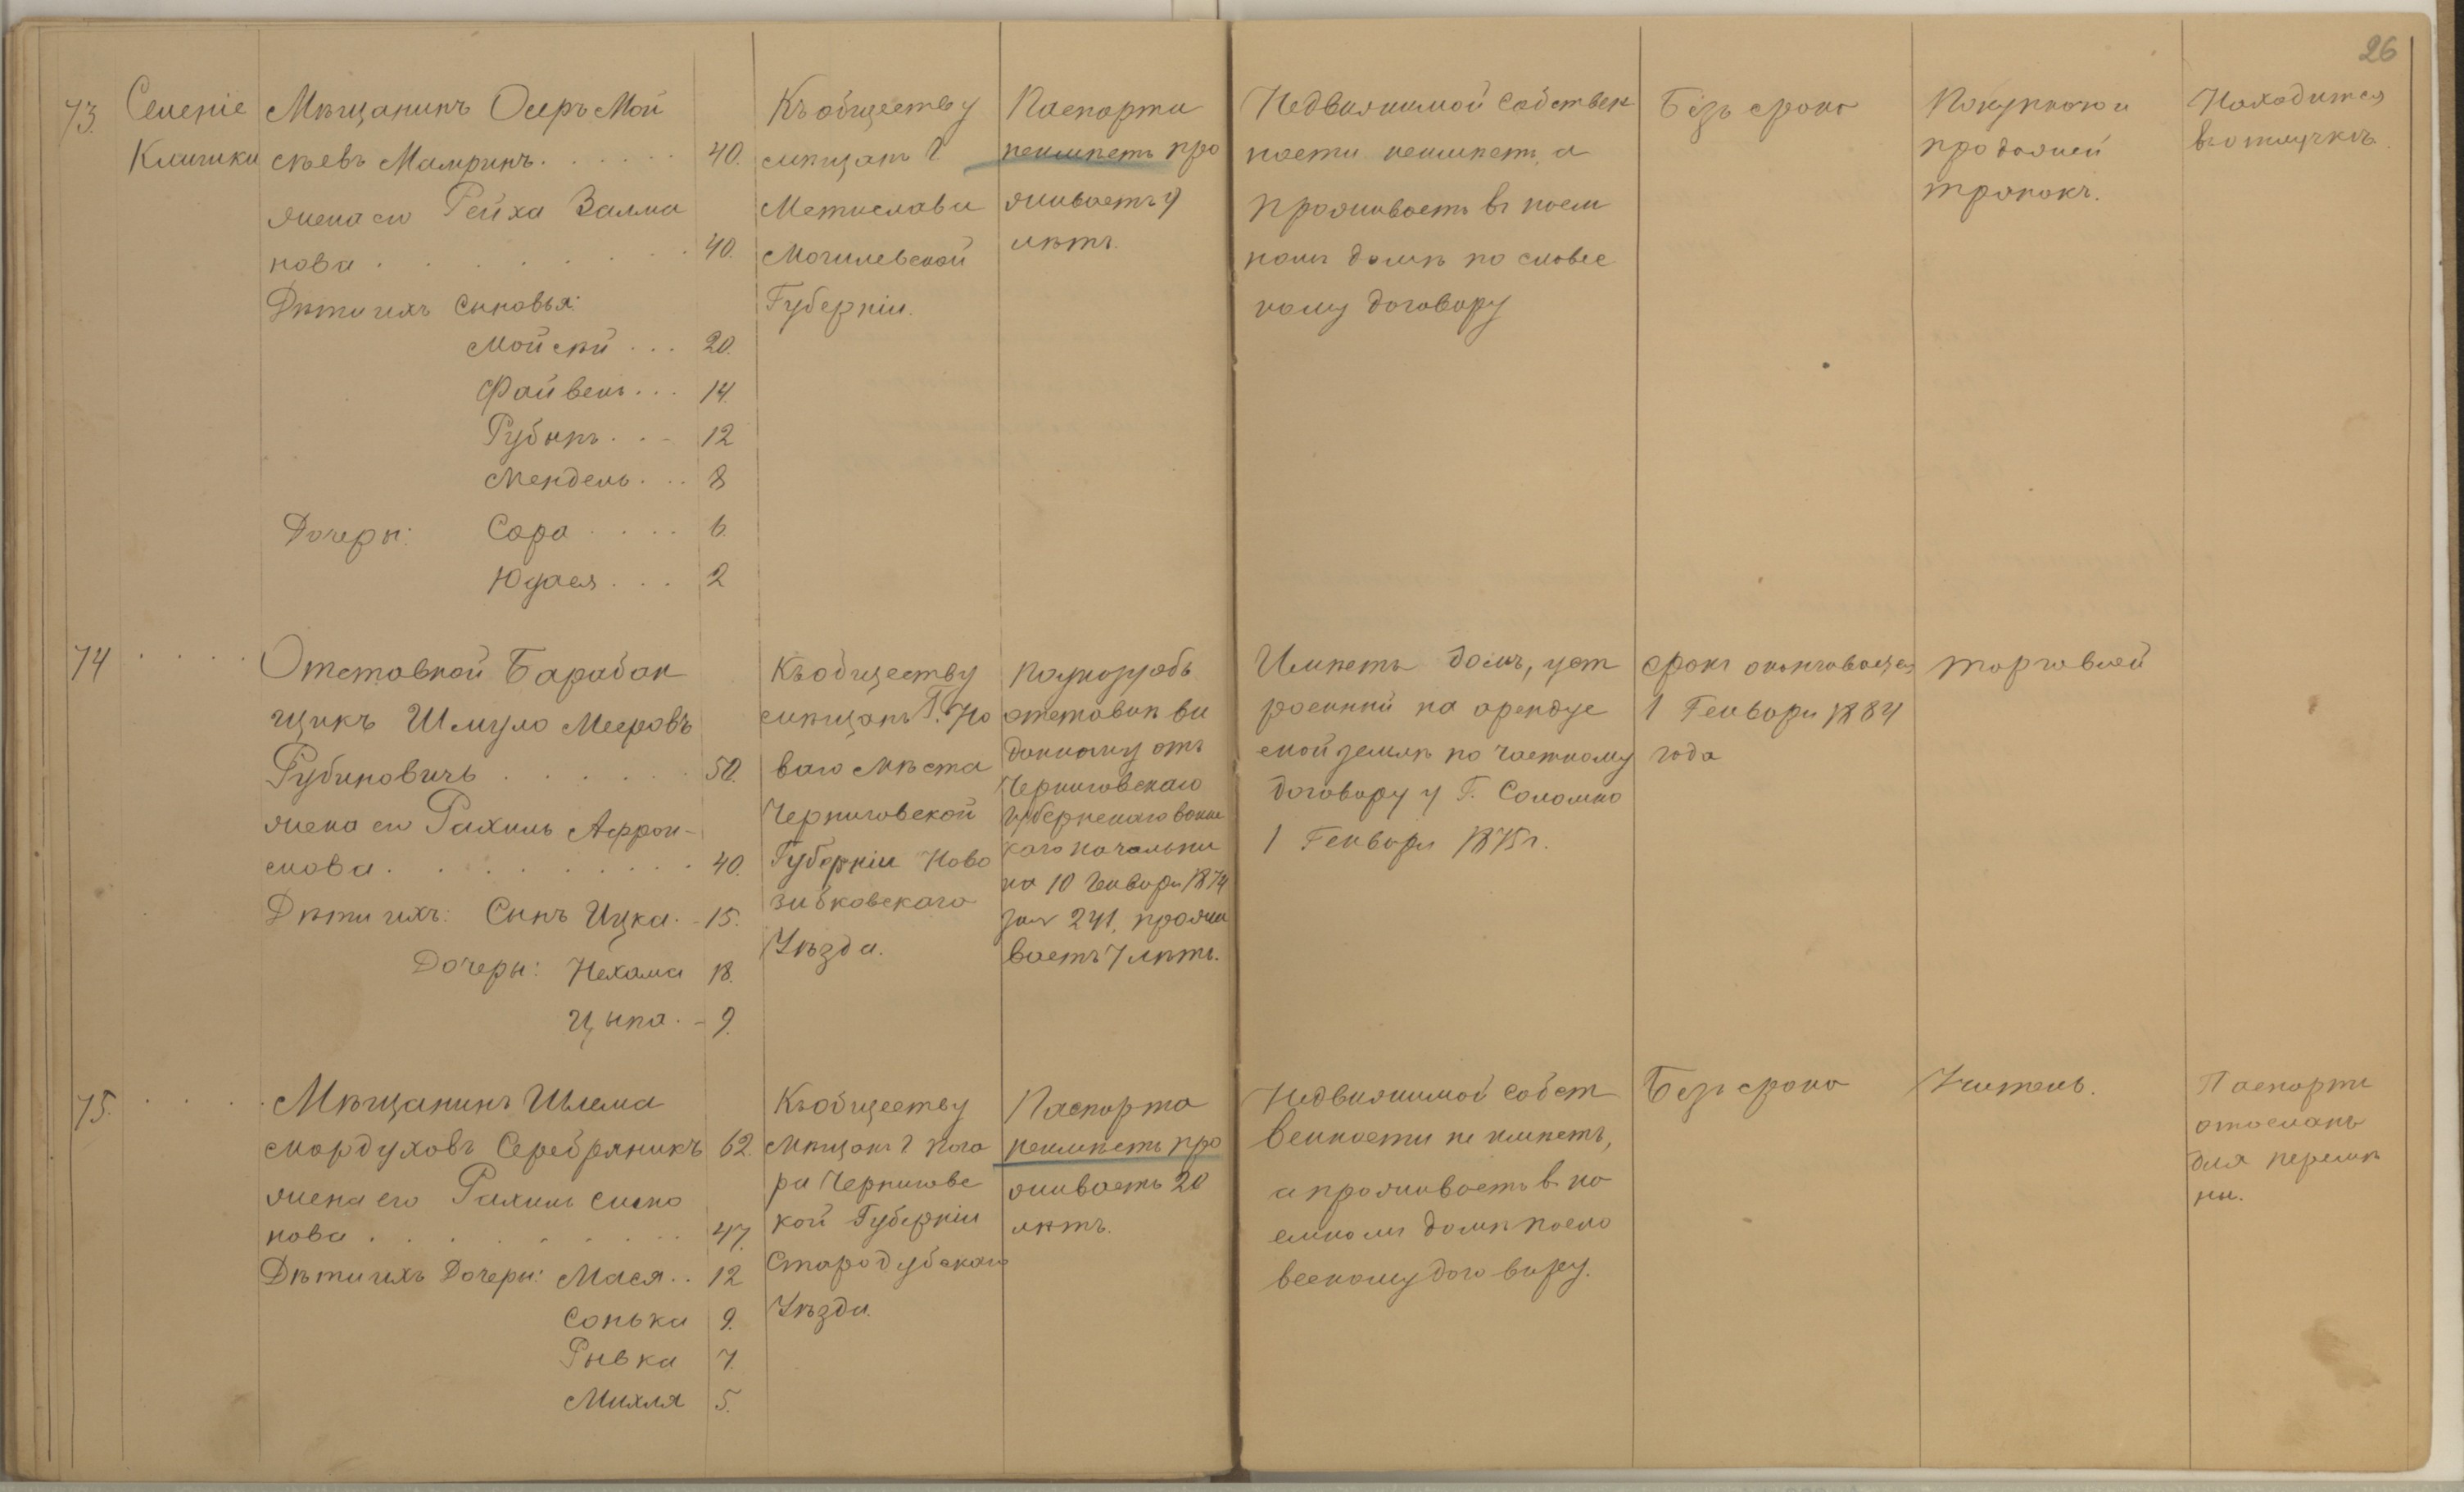 26
73.
Селеніе
Клишки
Мѣщанинъ Осеръ Мой
сѣевъ Мамринъ. 40.
жена его Рейха Залма
нова 40.
Дѣти ихъ Сыновья:
Мойсѣй 20.
Файвель 14.
Рубинъ 12
Мендель 8
Дочери: Сора 6.
Юдася 2
Къ обществу
мѣщанъ Г.
Мстиславля
Могилевской
Губерніи.
Паспорта
неимѣетъ про
живаетъ 9
лѣтъ.
Недвижимой собствен
ности неимѣетъ, а
проживаетъ въ наем
номъ домѣ по словес
ному договору
Безъ срока
Покупкою и
продажей
тряпокъ.
Находится
въ отлучкѣ.
74
Отставной Барабан
щикъ Шмуло Мееровъ
Рубиновичъ 50.
жена его Рахиль Афрои-
мова 40.
Дѣти ихъ: Сынъ Ицка 15.
Дочери: Нехама 18.
Цыпа 9.
Къ обществу
мѣщанъ Г. Но
ваго Мѣста
Черниговской
Губерніи Ново
зибковскаго
Уѣзда.
По указу объ
отставкѣ вы
данному отъ
Черниговскаго
Губернскаго воинс
каго начальни
ка 10 Генваря 1874
за № 241, прожи
ваетъ 7 лѣтъ.
Имѣетъ домъ, уст
роенный на арендуе
мой землѣ по частному
договору у Г. Соломко
1 Генваря 1875 г.
срокъ оканчивается
1 Генваря 1884
года
торговлей
75.
Мѣщанинъ Шлема
Мордуховъ Серебряникъ 62.
жена его Рахиль Симо
нова 47.
Дѣти ихъ Дочери: Мася 12
Сонька 9.
Рывка 7.
Михля 5.
Къ обществу
Мѣщанъ Г. Пога
ра Черниговс
кой Губерніи
Стародубскаго
Уѣзда.
Паспорта
неимѣетъ про
живаетъ 20
лѣтъ.
Недвижимой собст
венности не имѣетъ,
а проживаетъ въ на
емномъ домѣ по сло
весному договору.
Безъ срока
Учитель.
Паспортъ
отосланъ
для перемѣ
ны.